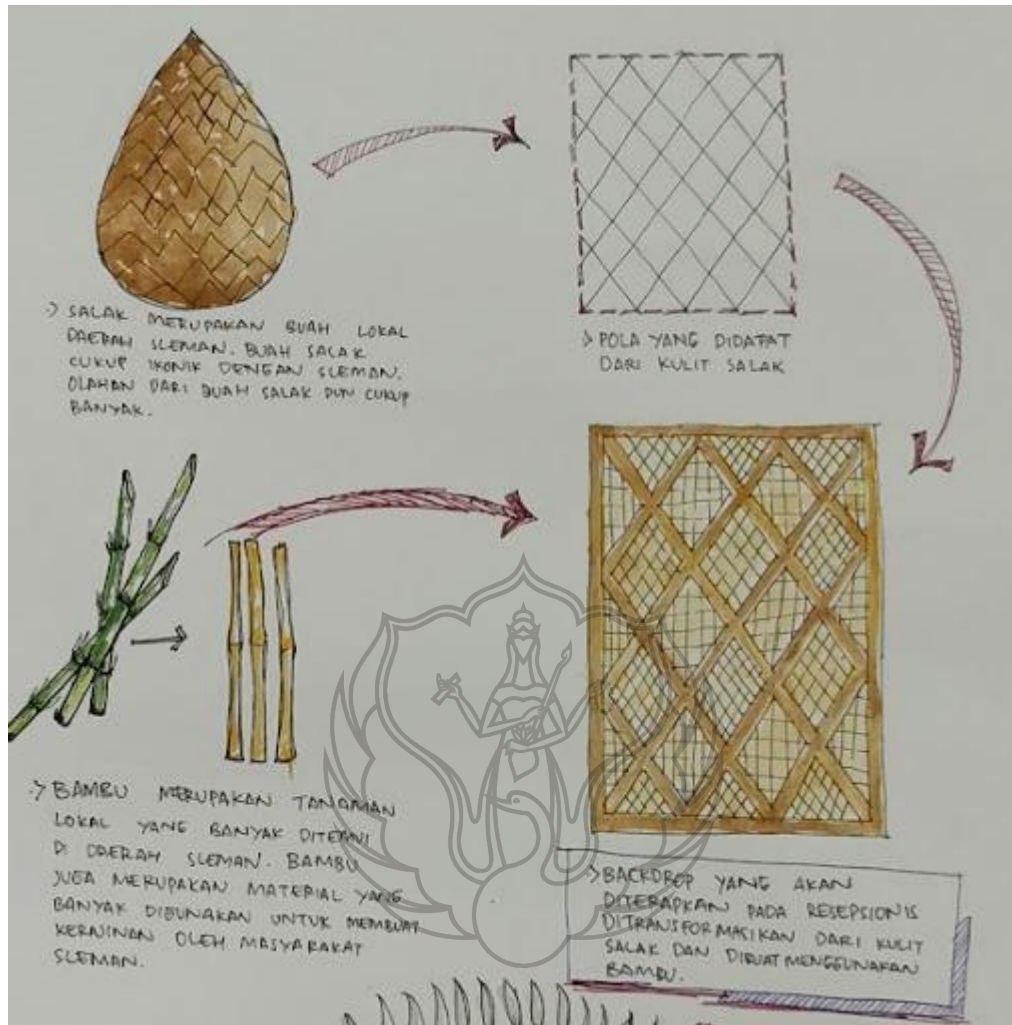 -> SALAK MERUPAKAN BUAH LOKAL
DAERAH SLEMAN. BUAH SALAK
CUKUP IKONIK DENGAN SLEMAN.
OLAHAN DARI BUAH SALAK PUN CUKUP
BANYAK.
-> POLA YANG DIDAPAT
DARI KULIT SALAK
-> BAMBU MERUPAKAN TANAMAN
LOKAL YANG BANYAK DITEMUI
DI DAERAH SLEMAN. BAMBU
JUGA MERUPAKAN MATERIAL YANG
BANYAK DIGUNAKAN UNTUK MEMBUAT
KERAJINAN OLEH MASYARAKAT
SLEMAN.
-> BACKDROP YANG AKAN
DITERAPKAN PADA RESEPSIONIS
DITRANSFORMASIKAN DARI KULIT
SALAK DAN DIBUAT MENGGUNAKAN
BAMBU.